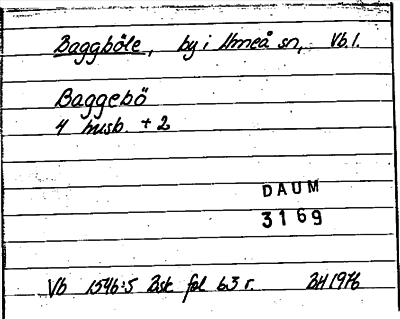 Baggböle, by i Umeå sn, Vb.l.
Baggebö
4 husb. + 2
DAUM
3169
Vb 1546:5 Bsk fol 63 r. BH 1976